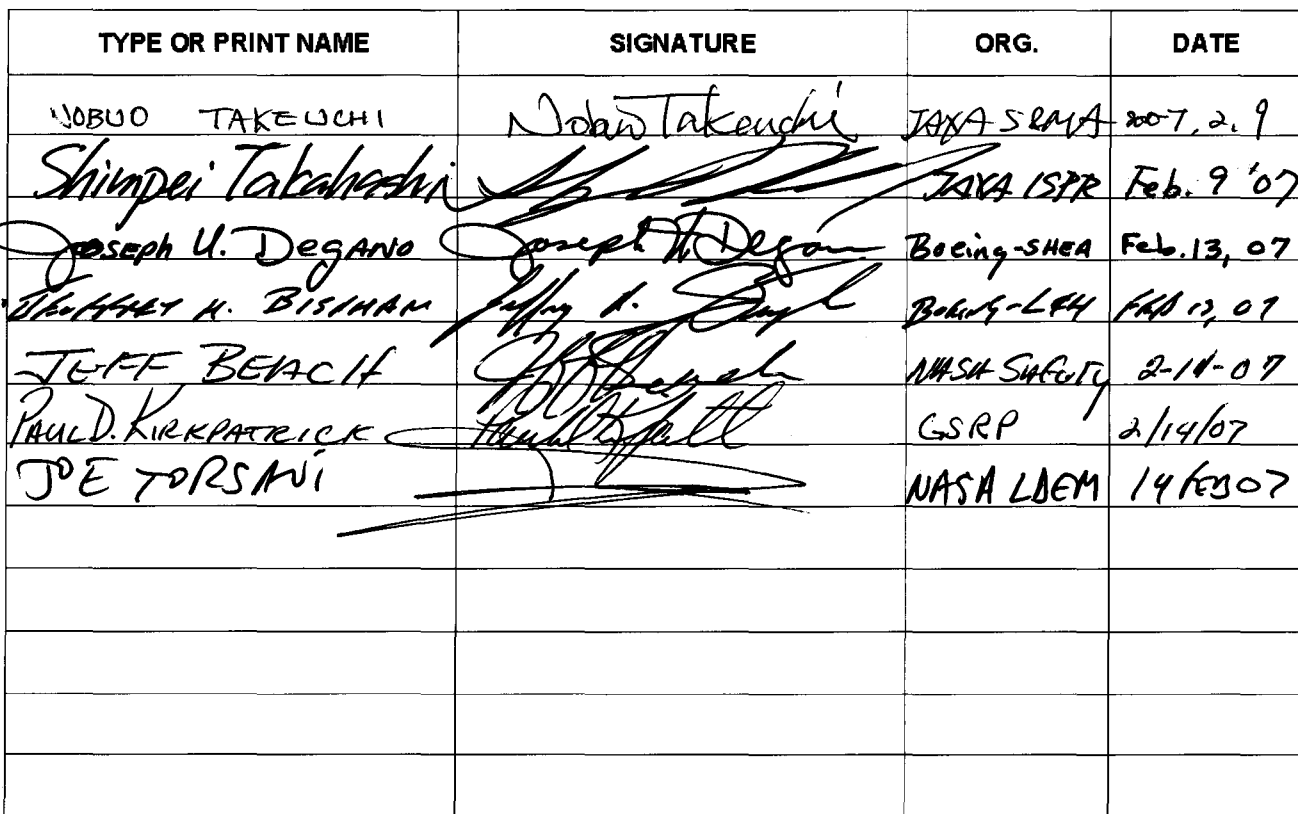 TYPE OR PRINT NAME SIGNATURE ORG. DATE
NOBUO TAKEUCHI Nobuo Takeuchi JAXA SRMA 2007, 2, 9
Shimpei Takahashi JAXA ISPR Feb. 9 '07
Joseph U. Degano Joseph U. Degano Boeing-SHEA Feb. 13, 07
BISHAM Boeing- FEB 13, 07
JEFF BEACH NASA SAFETY 2-14-07
PAUL D. KIRKPATRICK GSRP 2/14/07
JOE TORSANI NASA LDEM 14 FEB 07